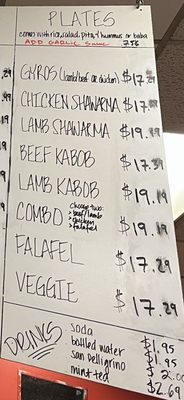 PLATES
comes with rice, salad, pita, + hummus or baba
ADD GARLIC SAUCE 75¢
GYROS (lamb/beef or chicken) $17.29
CHICKEN SHAWARMA $17.29
LAMB SHAWARMA $19.19
BEEF KABOB $17.39
LAMB KABOB $19.19
COMBO choose two: $19.19
> beef/lamb
> chicken
> falafel
FALAFEL $17.29
VEGGIE $17.29
DRINKS
soda $1.95
bottled water $1.95
san pellegrino
mint tea $2.69